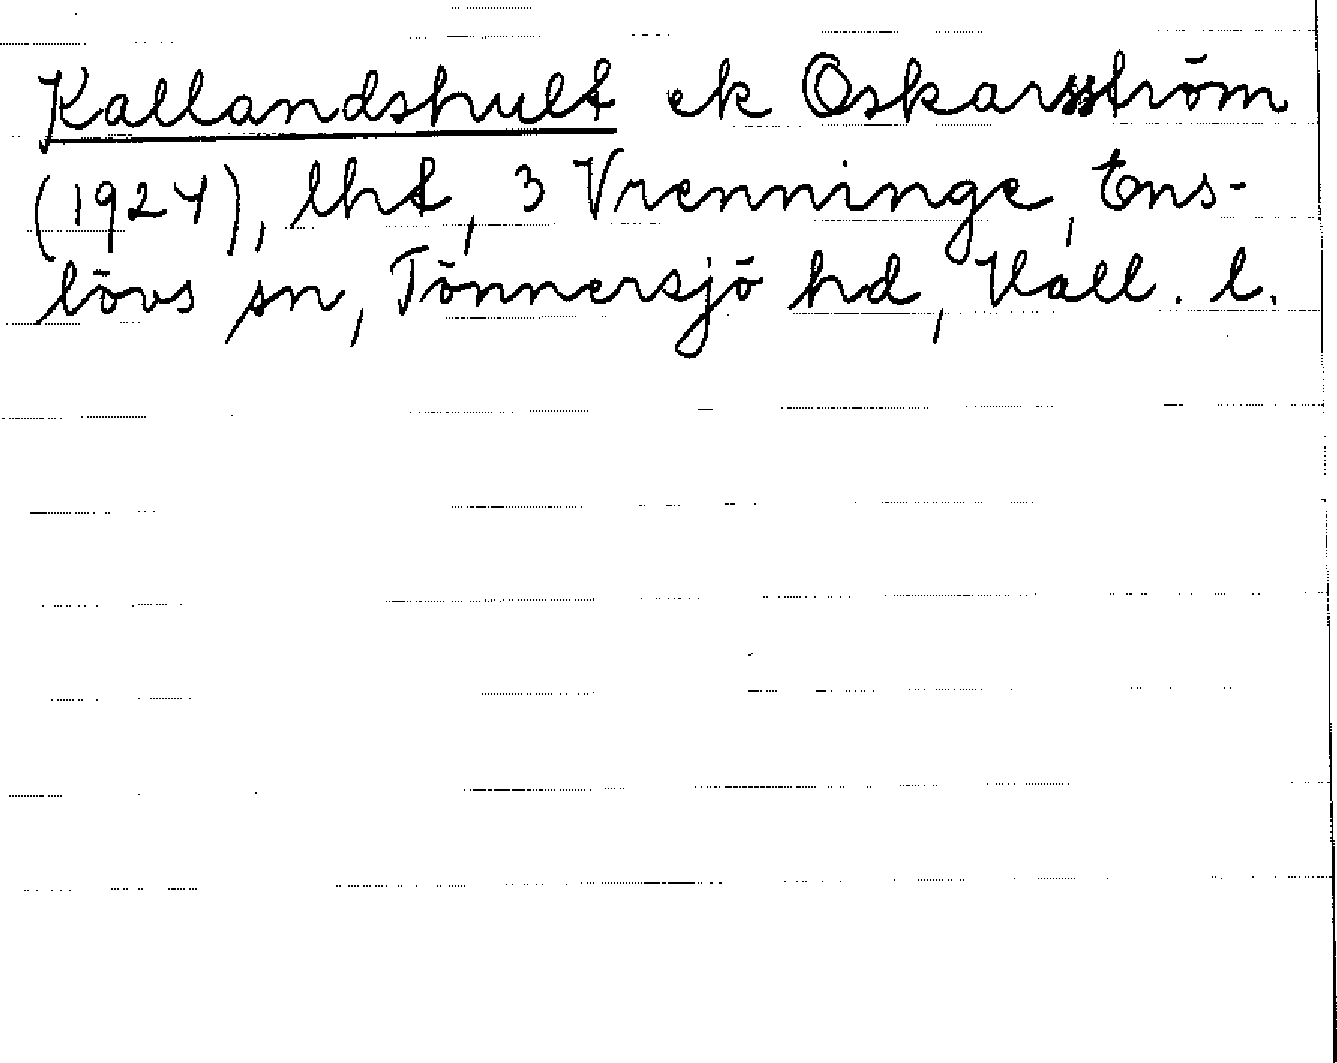 Kallandshult ek Oskarsström
(1924), lht, 3 Vrenninge, Ens-
lövs sn, Tönnersjö hd, Hall. l.